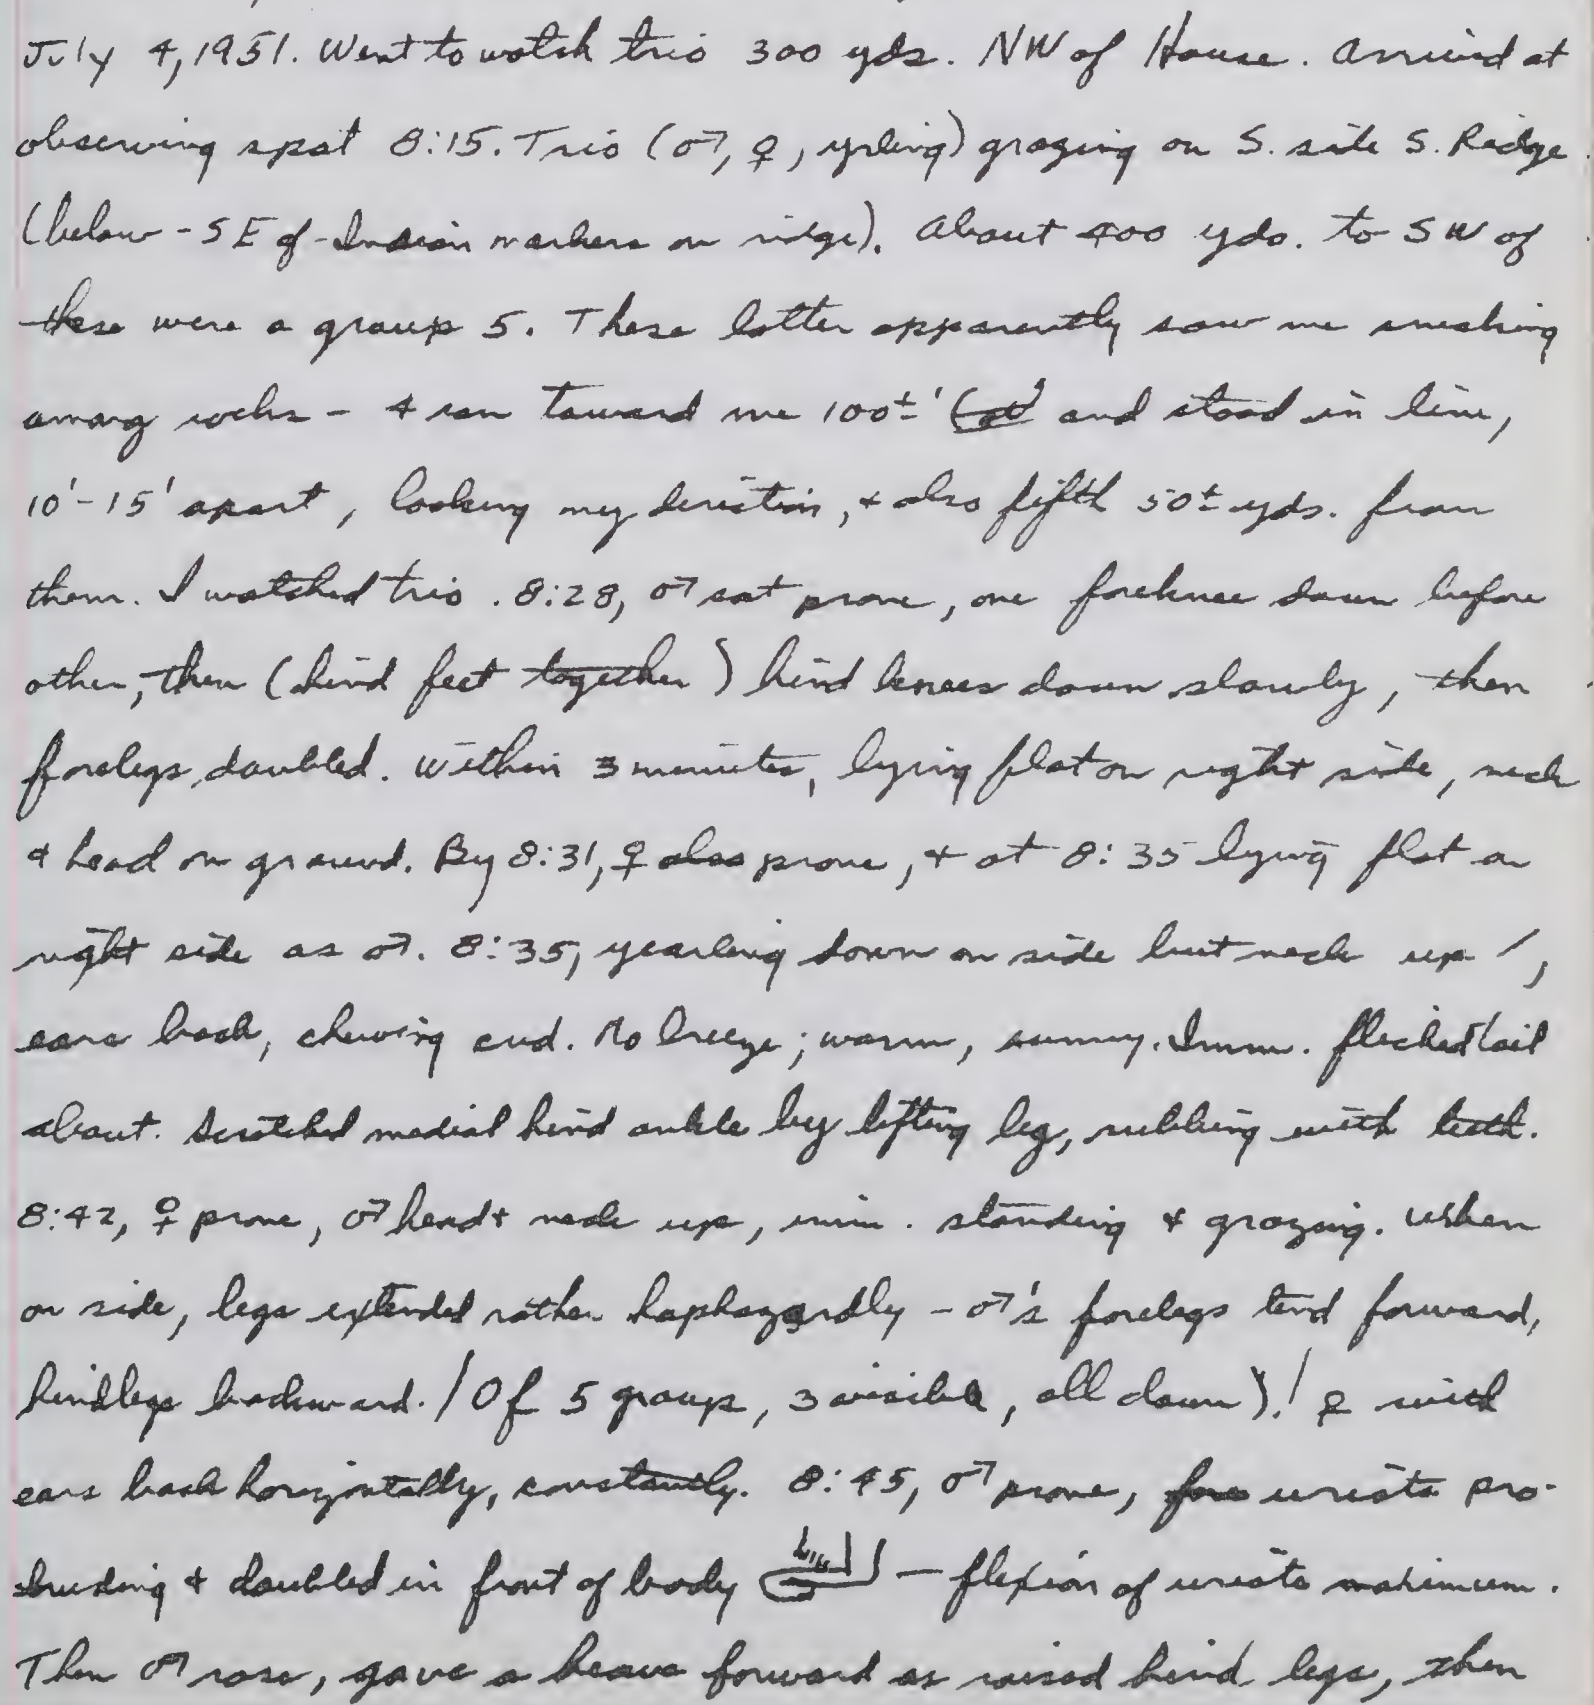 July 4, 1951. Went to watch trio 300 yds. NW of House. Arrived at
observing spot 8:15. Trio (♂, ♀, yrling) grazing on S. side S. Ridge
(below - SE of - Indian markers on ridge). About 400 yds. to SW of
these were a group 5. These latter apparently saw me sneaking
among rocks - 4 ran toward me 100±' and stood in line,
10'-15' apart, looking my direction, + also fifth 50± yds. from
them. I watched trio. 8:28, ♂ sat prone, one foreknee down before
other, then (hind feet together) hind knees down slowly, then
forelegs doubled. Within 3 minutes, lying flat on right side, neck
+ head on ground. By 8:31, ♀ also prone, + at 8:35 lying flat on
right side as ♂. 8:35, yearling down on side but neck up /,
ears back, chewing cud. No breeze; warm, sunny. Imm. flicked tail
about. Scratched medial hind ankle by lifting leg, rubbing with teeth.
8:42, ♀ prone, ♂ head + neck up, imm. standing + grazing. When
on side, legs extended rather haphazardly - ♂'s forelegs tend forward,
hindlegs backward. / Of 5 group, 3 visible, all down)! ♀ with
ears back horizontally, constantly. 8:45, ♂ prone, fore wrists pro-
truding + doubled in front of body - flexion of wrists maximum.
Then ♂ rose, gave a heave forward as raised hind legs, then